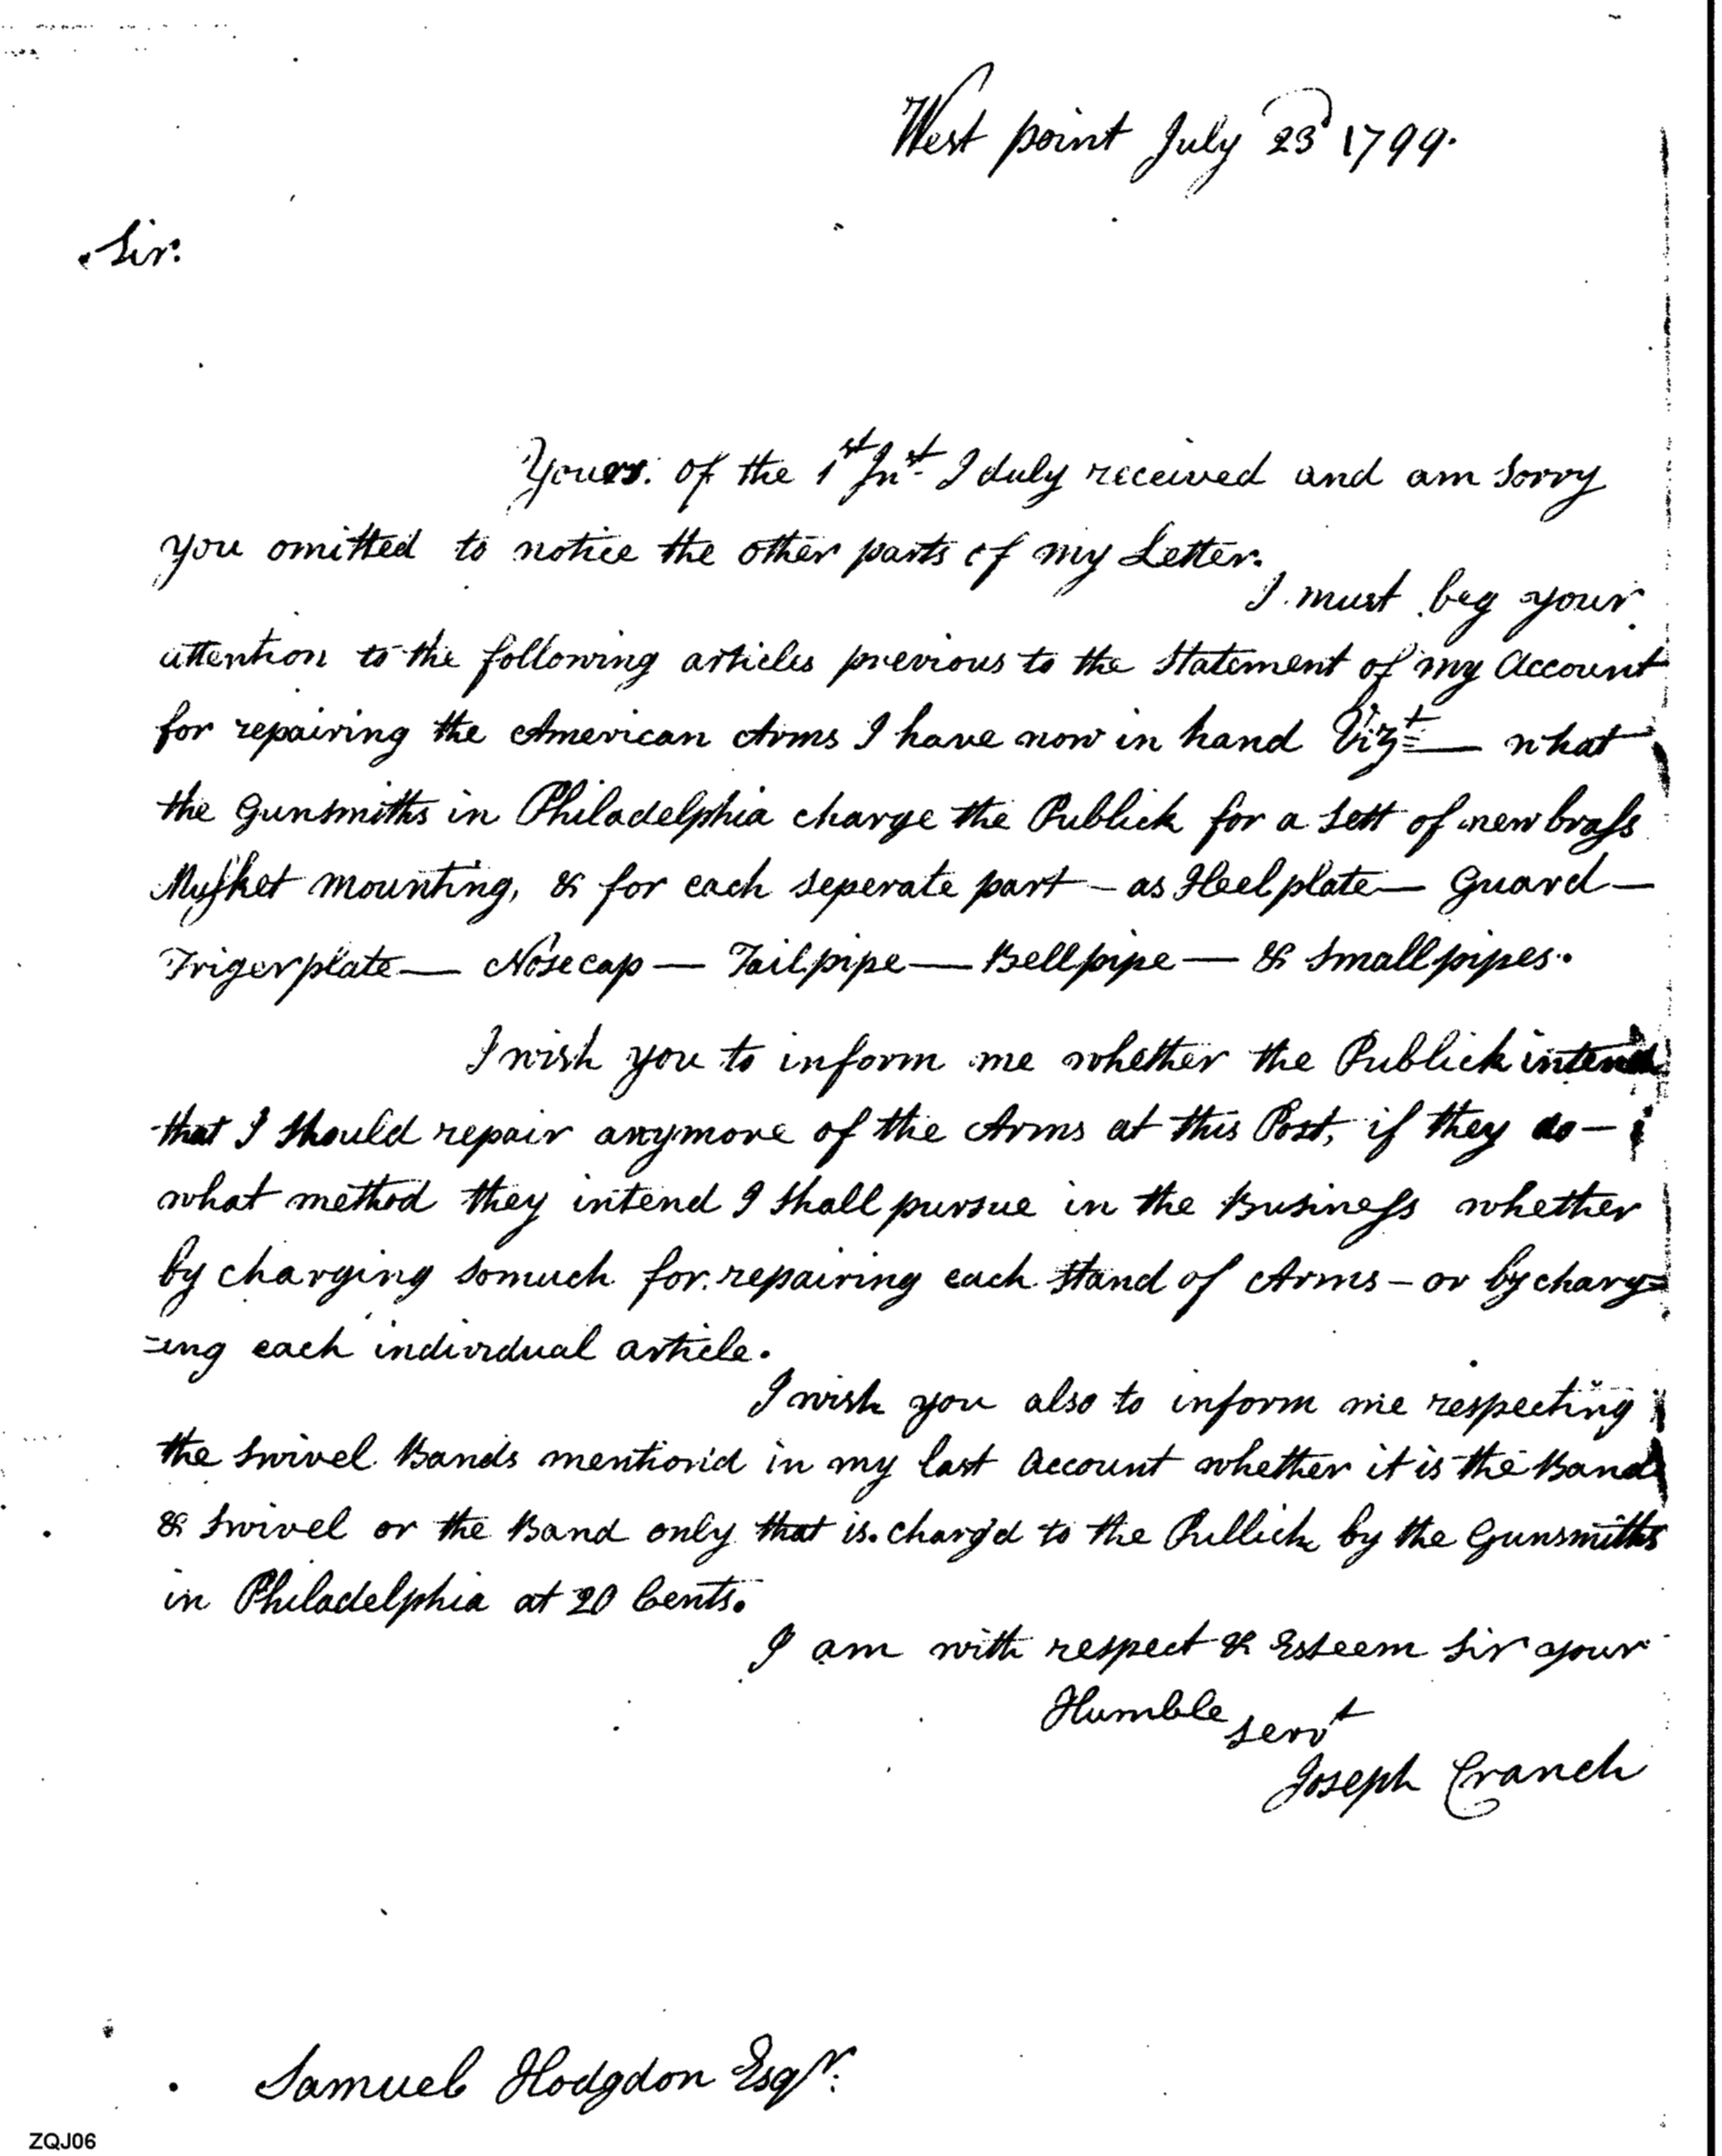 West point July 23d 1799.
Sir:
Yours. of the 1st Inst. I duly received and am sorry
you omitted to notice the other parts of my Letter.
I must beg your
attention to the following articles previous to the Statement of my Account
for repairing the American Arms I have now in hand Vizt — what
the Gunsmiths in Philadelphia charge the Publick for a Sett of new brass
Musket mounting, & for each seperate part – as Heelplate — Guard —
Trigerplate — Nosecap — Tailpipe — Bellpipe — & Smallpipes.
I wish you to inform me whether the Publick intend
that I should repair anymore of the Arms at this Post, if they do —
what method they intend I shall pursue in the Business whether
by charging somuch for repairing each Stand of Arms – or by charg=
=ing each individual article.
I wish you also to inform me respecting
the Swivel Bands mention'd in my last Account whether it is the Band
& Swivel or the Band only that is charg'd to the Publick by the Gunsmiths
in Philadelphia at 20 Cents.
I am with respect & Esteem Sir your
Humble Servt
Joseph Cranch
Samuel Hodgdon Esqr:
ZQJ06